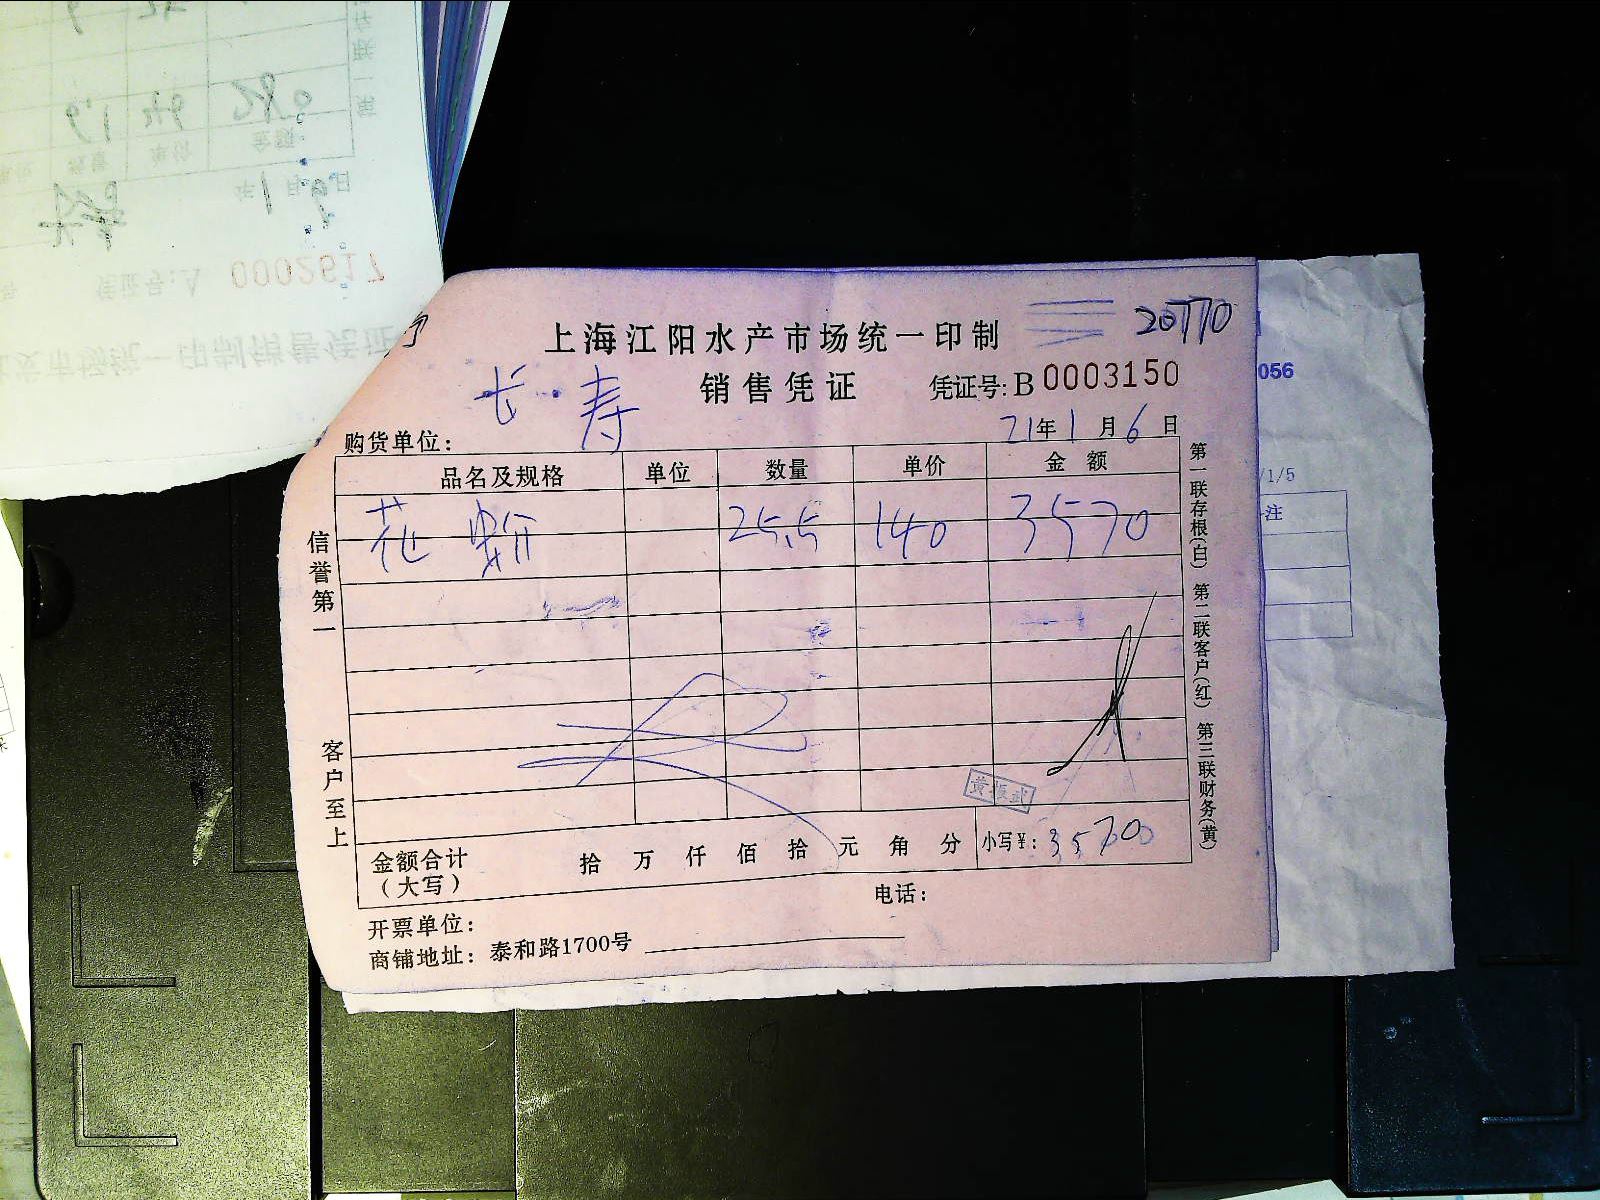 20770
上海江阳水产市场统一印制
销售凭证 凭证号:B 0003150
购货单位: 长寿
21年1月6日
品名及规格 单位 数量 单价 金额
花 25.5 140 3570
信誉第一
客户至上
第一联存根(白) 第二联客户(红) 第三联财务(黄)
金额合计(大写) 拾 万 仟 佰 拾 元 角 分 小写¥: 3570
电话:
开票单位:
商铺地址: 泰和路1700号
056
/1/5
注
0002617
凭证号:A
年1月9日
金额
单价
数量